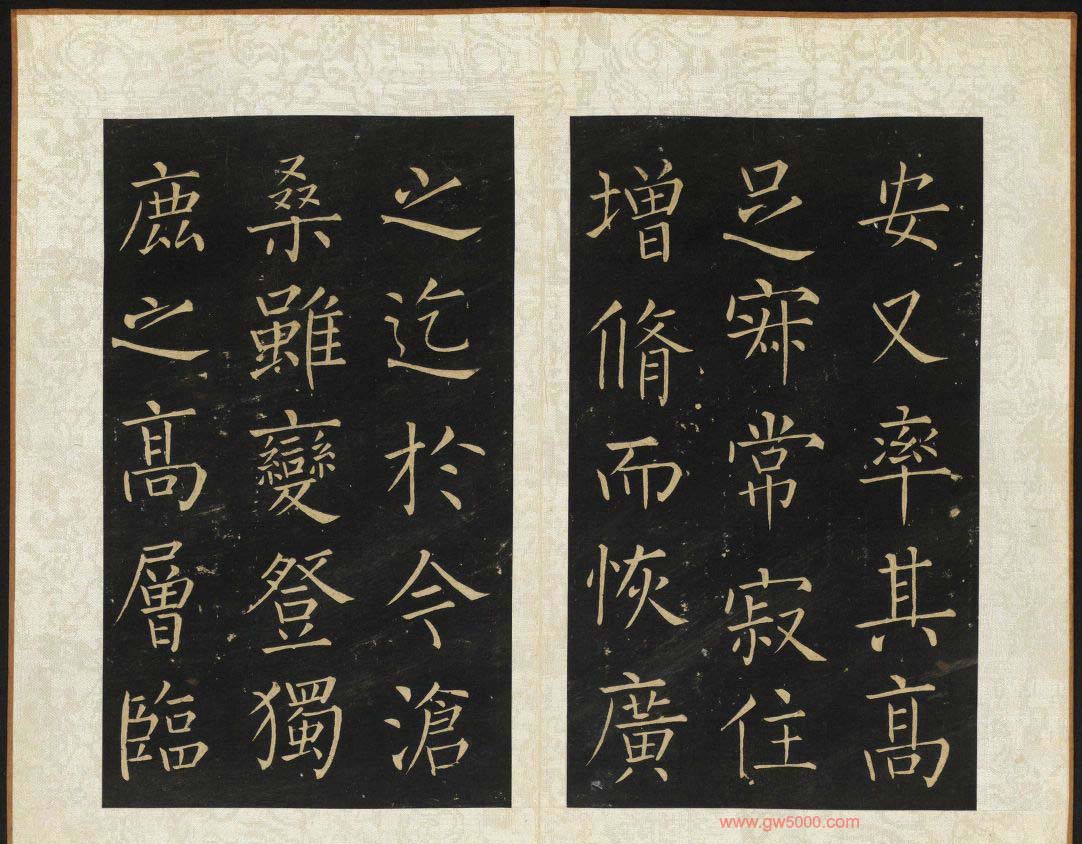 安又率其高
足寐常寂住
增脩而恢廣
之迄於今滄
桑雖變登獨
鹿之高層臨
www.gw5000.com